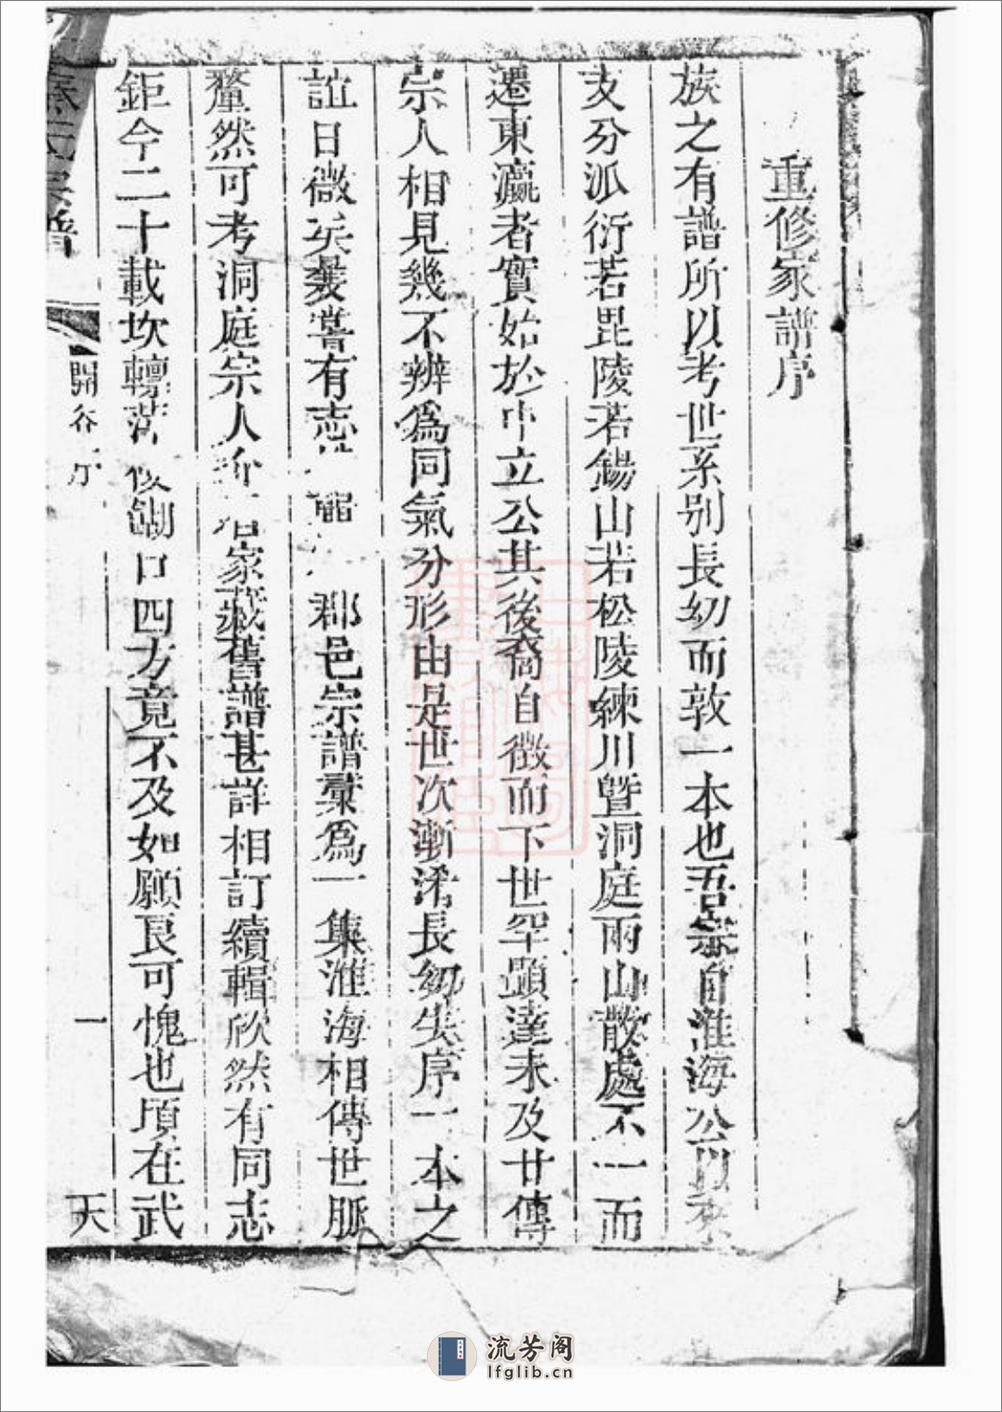 重修家譜序
族之有譜所以考世系别長幼而敦一本也吾宗自淮海公以來
支分派衍若毘陵若錫山若松陵練川暨洞庭兩山散處不一而
遷東瀛者實始於中立公其後裔自徵而下世罕顯達未及廿傳
宗人相見幾不辨爲同氣分形由是世次漸淆長幼失序一本之
誼日微矣曩嘗有志 郡邑宗譜彙爲一集淮海相傳世脈
釐然可考洞庭宗人 家藏舊譜甚詳相訂續輯欣然有同志
鉅今二十載坎轗 餬口四方竟不及如願良可愧也頃在武
秦氏宗譜
一
天
流芳阁
lfglib.cn